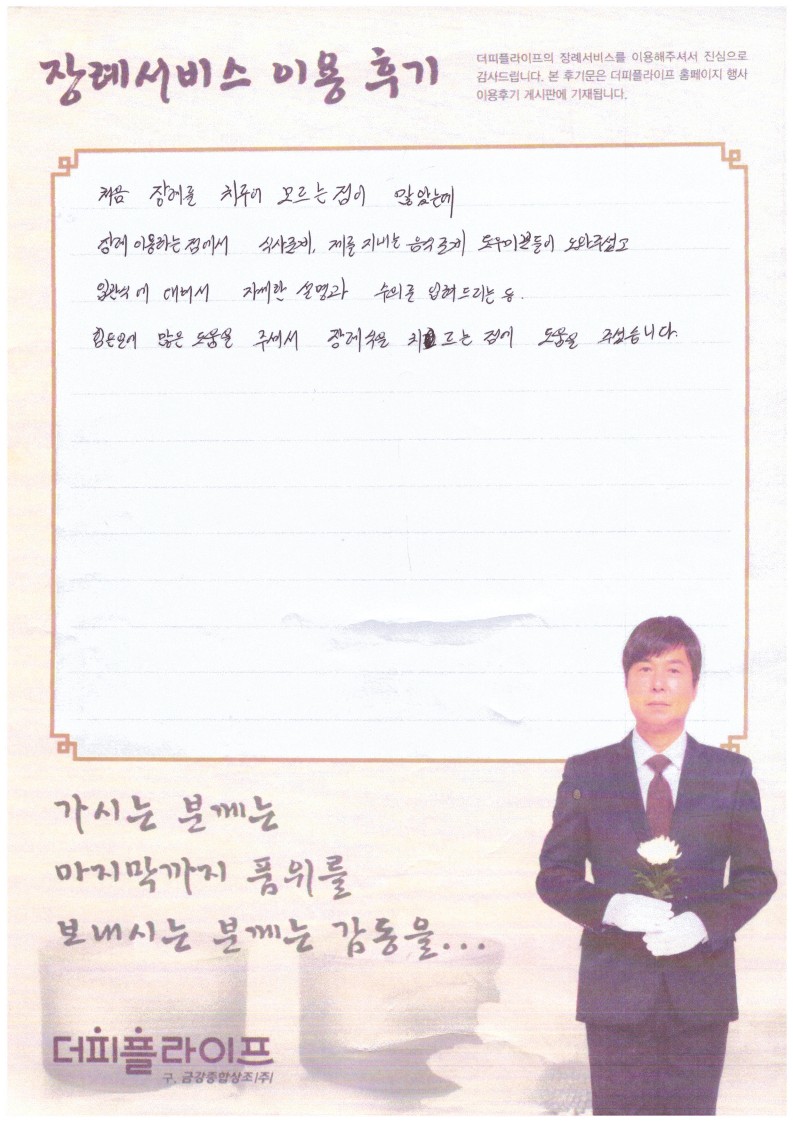 장례서비스 이용 후기
더피플라이프의 장례서비스를 이용해주셔서 진심으로
감사드립니다. 본 후기문은 더피플라이프 홈페이지 행사
이용후기 게시판에 기재됩니다.
처음 장례를 치루어 모르는 점이 많았는데
장례 이용하는 점에서 식사준비, 제를 지내는 음식준비 도우미분들이 도와주셨고
입관식에 대해서 자세한 설명과 수의를 입혀드리는 등.
많은 도움을 주셔서 장례식을 치르는 점에 도움을 주셨습니다.
가시는 분께는
마지막까지 품위를
보내시는 분께는 감동을...
더피플라이프
구. 금강종합상조(주)